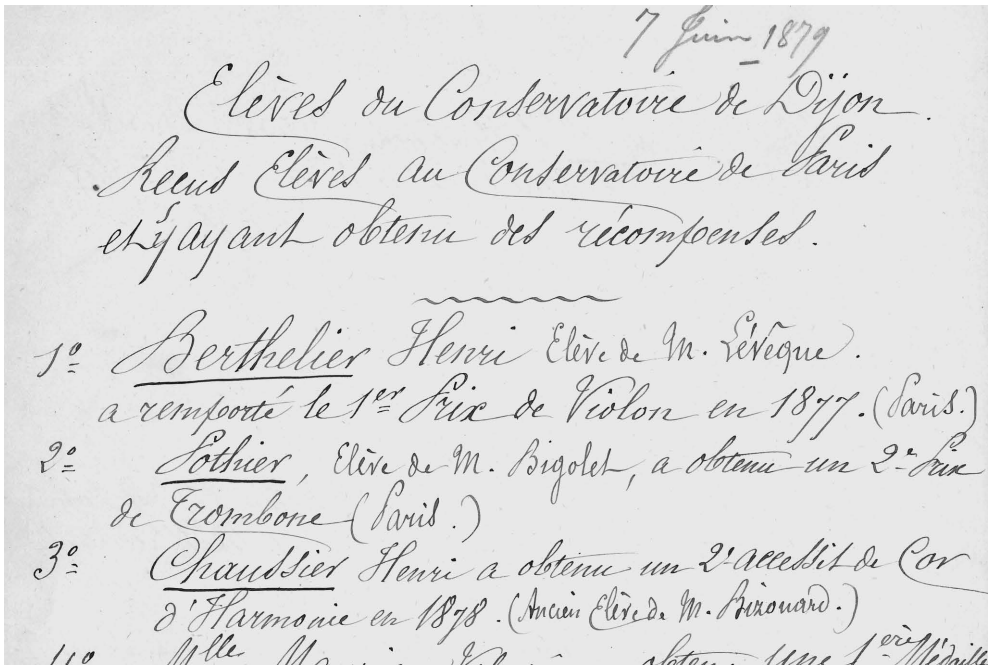 7 Juin 1879
Elèves du Conservatoire de Dijon.
Recus Elèves au Conservatoire de Paris
et y ayant obtenu des récompenses.
1º Berthelier Henri Elève de M. Lévêque.
a remporté le 1er Prix de Violon en 1877. (Paris.)
2º Pothier, Elève de M. Bigolet, a obtenu un 2e Prix
de Trombone (Paris.)
3º Chaussier Henri a obtenu un 2e accessit de Cor
d'Harmonie en 1878. (Ancien Elève de M. Bizouard.)
4º Mlle obtenu une 1ère Médaille